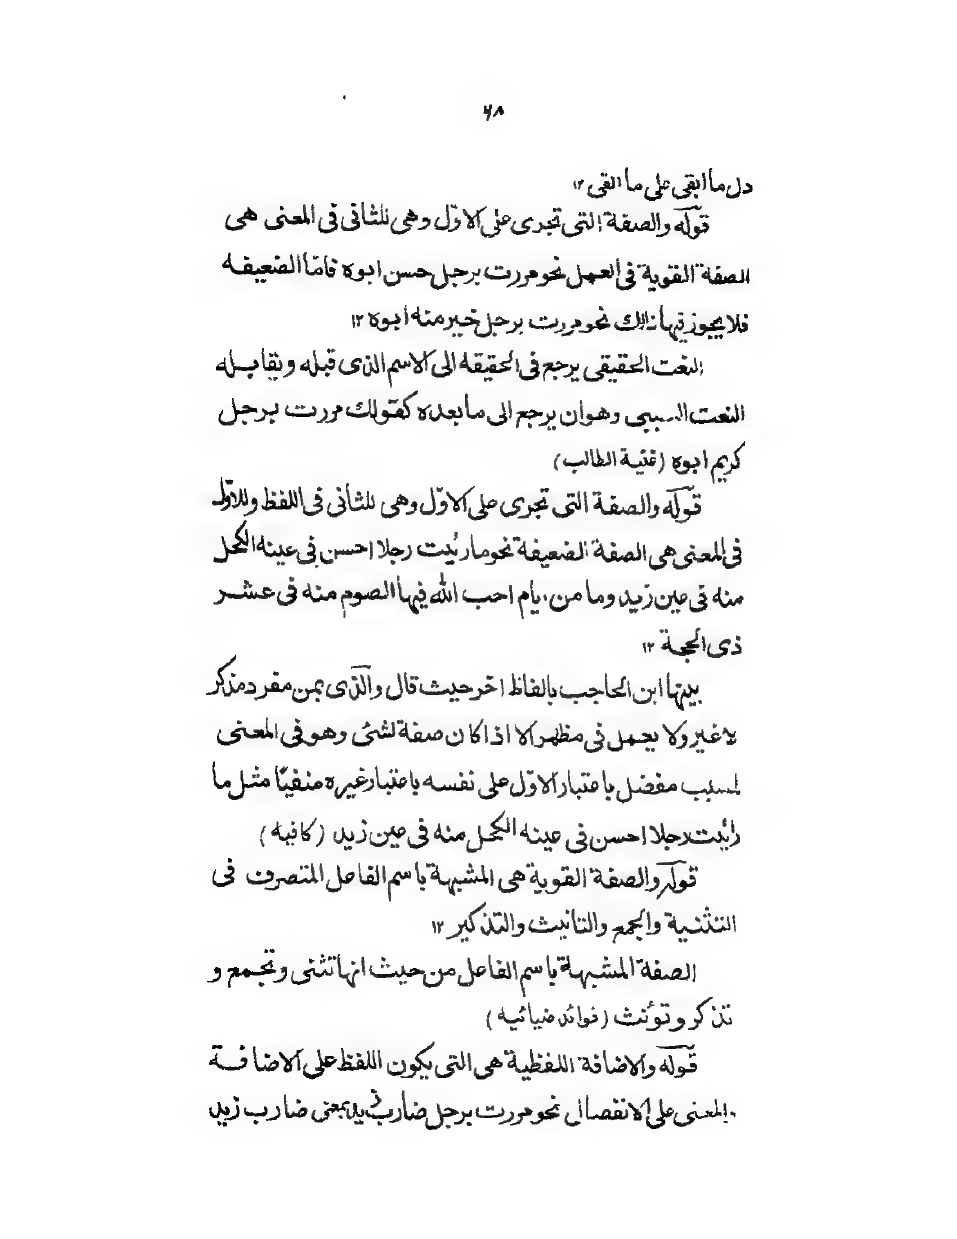 ٦٨
دل ما ابقى على ما القى ١٢
قوله والصفة التى تجرى على الاوّل وهى للثانى فى المعنى هى
الصفة القوية فى العمل نحو مررت برجل حسن ابوه فامّا الضعيفه
فلا يجوز فيها ذالك نحو مررت برجل خير منه ابوه ١٢
النعت الحقيقى يرجع فى الحقيقه الى الاسم الذى قبله ويقابله
النعت السببى وهو ان يرجع الى ما بعده كقولك مررت برجل
كريم ابوه (غنية الطالب)
قوله والصفة التى تجرى على الاوّل وهى للثانى فى اللفظ وللاوّل
فى المعنى هى الصفة الضعيفة نحو ما رئيت رجلا احسن فى عينه الكحل
منه فى عين زيد وما من ايام احب الله فيها الصوم منه فى عشر
ذى الحجة ١٢
بينها ابن الحاجب بالفاظ اخر حيث قال والذى بمن مفرد مذكر
لا غير ولا يعمل فى مظهر الا اذا كان صفة لشئ وهو فى المعنى
لمسبب مفضل باعتبار الاوّل على نفسه باعتبار غيره منفيّا مثل ما
رائيت رجلا احسن فى عينه الكحل منه فى عين زيد (كافيه)
قوله والصفة القوية هى المشبهة باسم الفاعل المتصرف فى
التثنية والجمع والتانيث والتذكير ١٢
الصفة المشبهة باسم الفاعل من حيث انها تثنى وتجمع و
تذكر وتؤنث (فوائد ضيائيه)
قوله والاضافة اللفظية هى التى يكون اللفظ على الاضافة
والمعنى على الانفصال نحو مررت برجل ضارب زيد بمعنى ضارب زيد